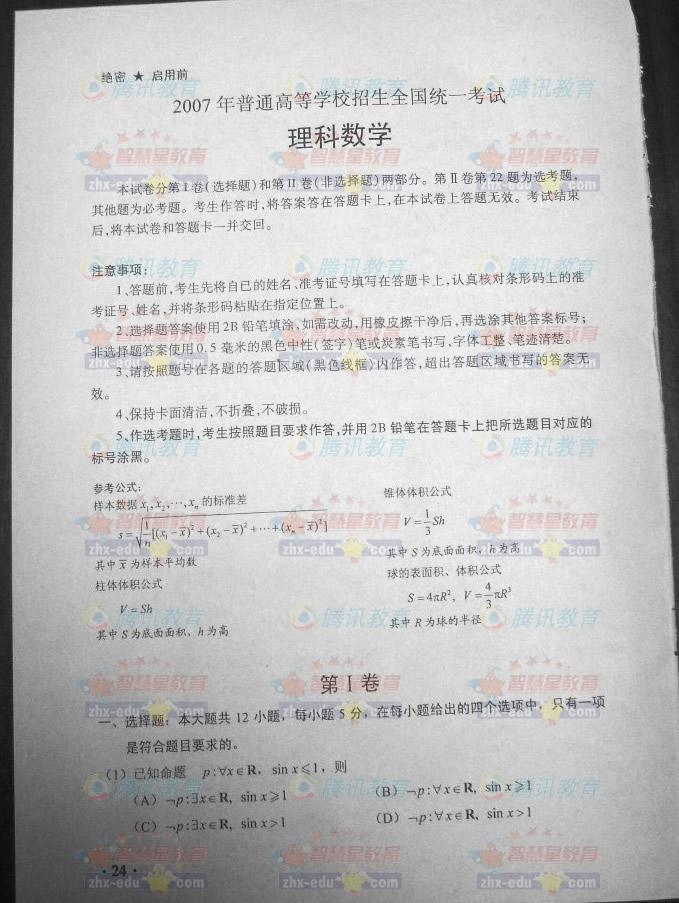 绝密 ★ 启用前
2007 年普通高等学校招生全国统一考试
理科数学
本试卷分第Ⅰ卷(选择题)和第Ⅱ卷(非选择题)两部分。第Ⅱ卷第22题为选考题,
其他题为必考题。考生作答时,将答案答在答题卡上,在本试卷上答题无效。考试结束
后,将本试卷和答题卡一并交回。
注意事项:
1、答题前,考生先将自己的姓名、准考证号填写在答题卡上,认真核对条形码上的准
考证号、姓名,并将条形码粘贴在指定位置上。
2、选择题答案使用2B铅笔填涂,如需改动,用橡皮擦干净后,再选涂其他答案标号;
非选择题答案使用0.5毫米的黑色中性(签字)笔或炭素笔书写,字体工整、笔迹清楚。
3、请按照题号在各题的答题区域(黑色线框)内作答,超出答题区域书写的答案无
效。
4、保持卡面清洁,不折叠,不破损。
5、作选考题时,考生按照题目要求作答,并用2B铅笔在答题卡上把所选题目对应的
标号涂黑。
参考公式:
样本数据 x₁,x₂,⋯,xₙ 的标准差
s=√(1/n[(x₁−x̄)²+(x₂−x̄)²+⋯+(xₙ−x̄)²])
其中 x̄ 为样本平均数
柱体体积公式
V=Sh
其中 S 为底面面积、h 为高
锥体体积公式
V=1/3Sh
其中 S 为底面面积,h 为高
球的表面积、体积公式
S=4πR², V=4/3πR³
其中 R 为球的半径
第Ⅰ卷
一、选择题:本大题共12小题,每小题5分,在每小题给出的四个选项中,只有一项
是符合题目要求的。
(1)已知命题 p:∀x∈R, sin x⩽1,则
(A)¬p:∃x∈R, sin x⩾1
(B)¬p:∀x∈R, sin x⩾1
(C)¬p:∃x∈R, sin x>1
(D)¬p:∀x∈R, sin x>1
·24·
腾讯教育
智慧星教育
zhx-edu.com